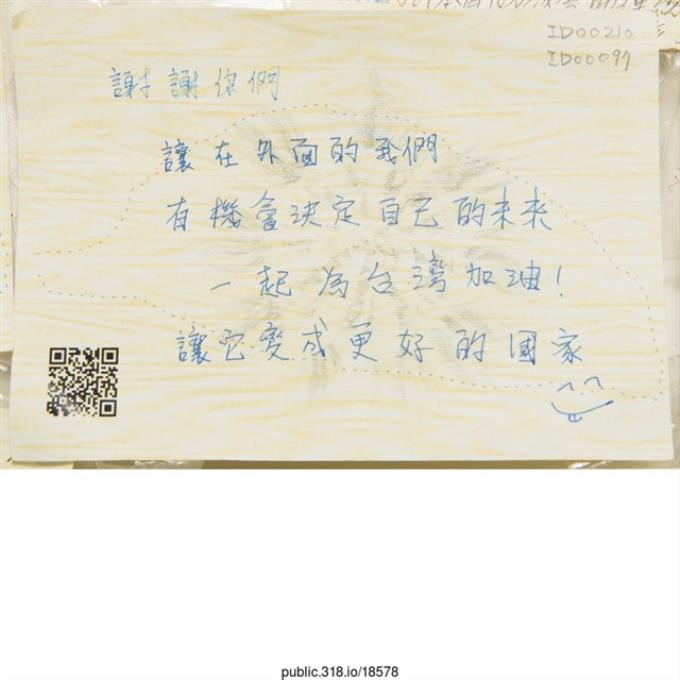 ID00210
ID00097
謝謝你們
讓在外面的我們
有機會決定自己的未來
一起為台灣加油!
讓它變成更好的國家
public.318.io/18578